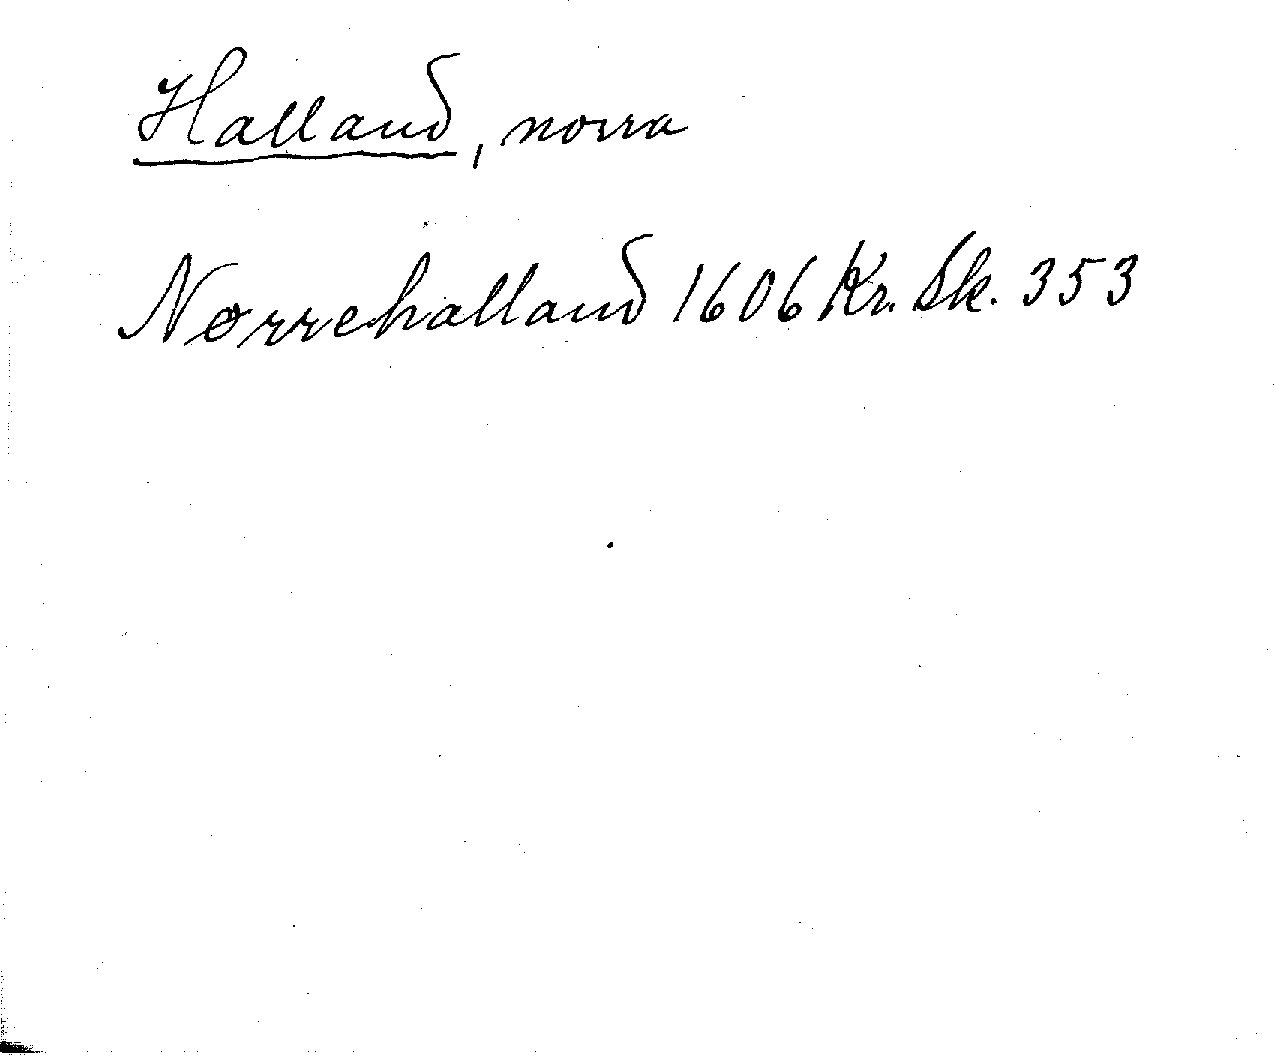 Halland, norra
Nørrehalland 1606 Kr. Sk. 353